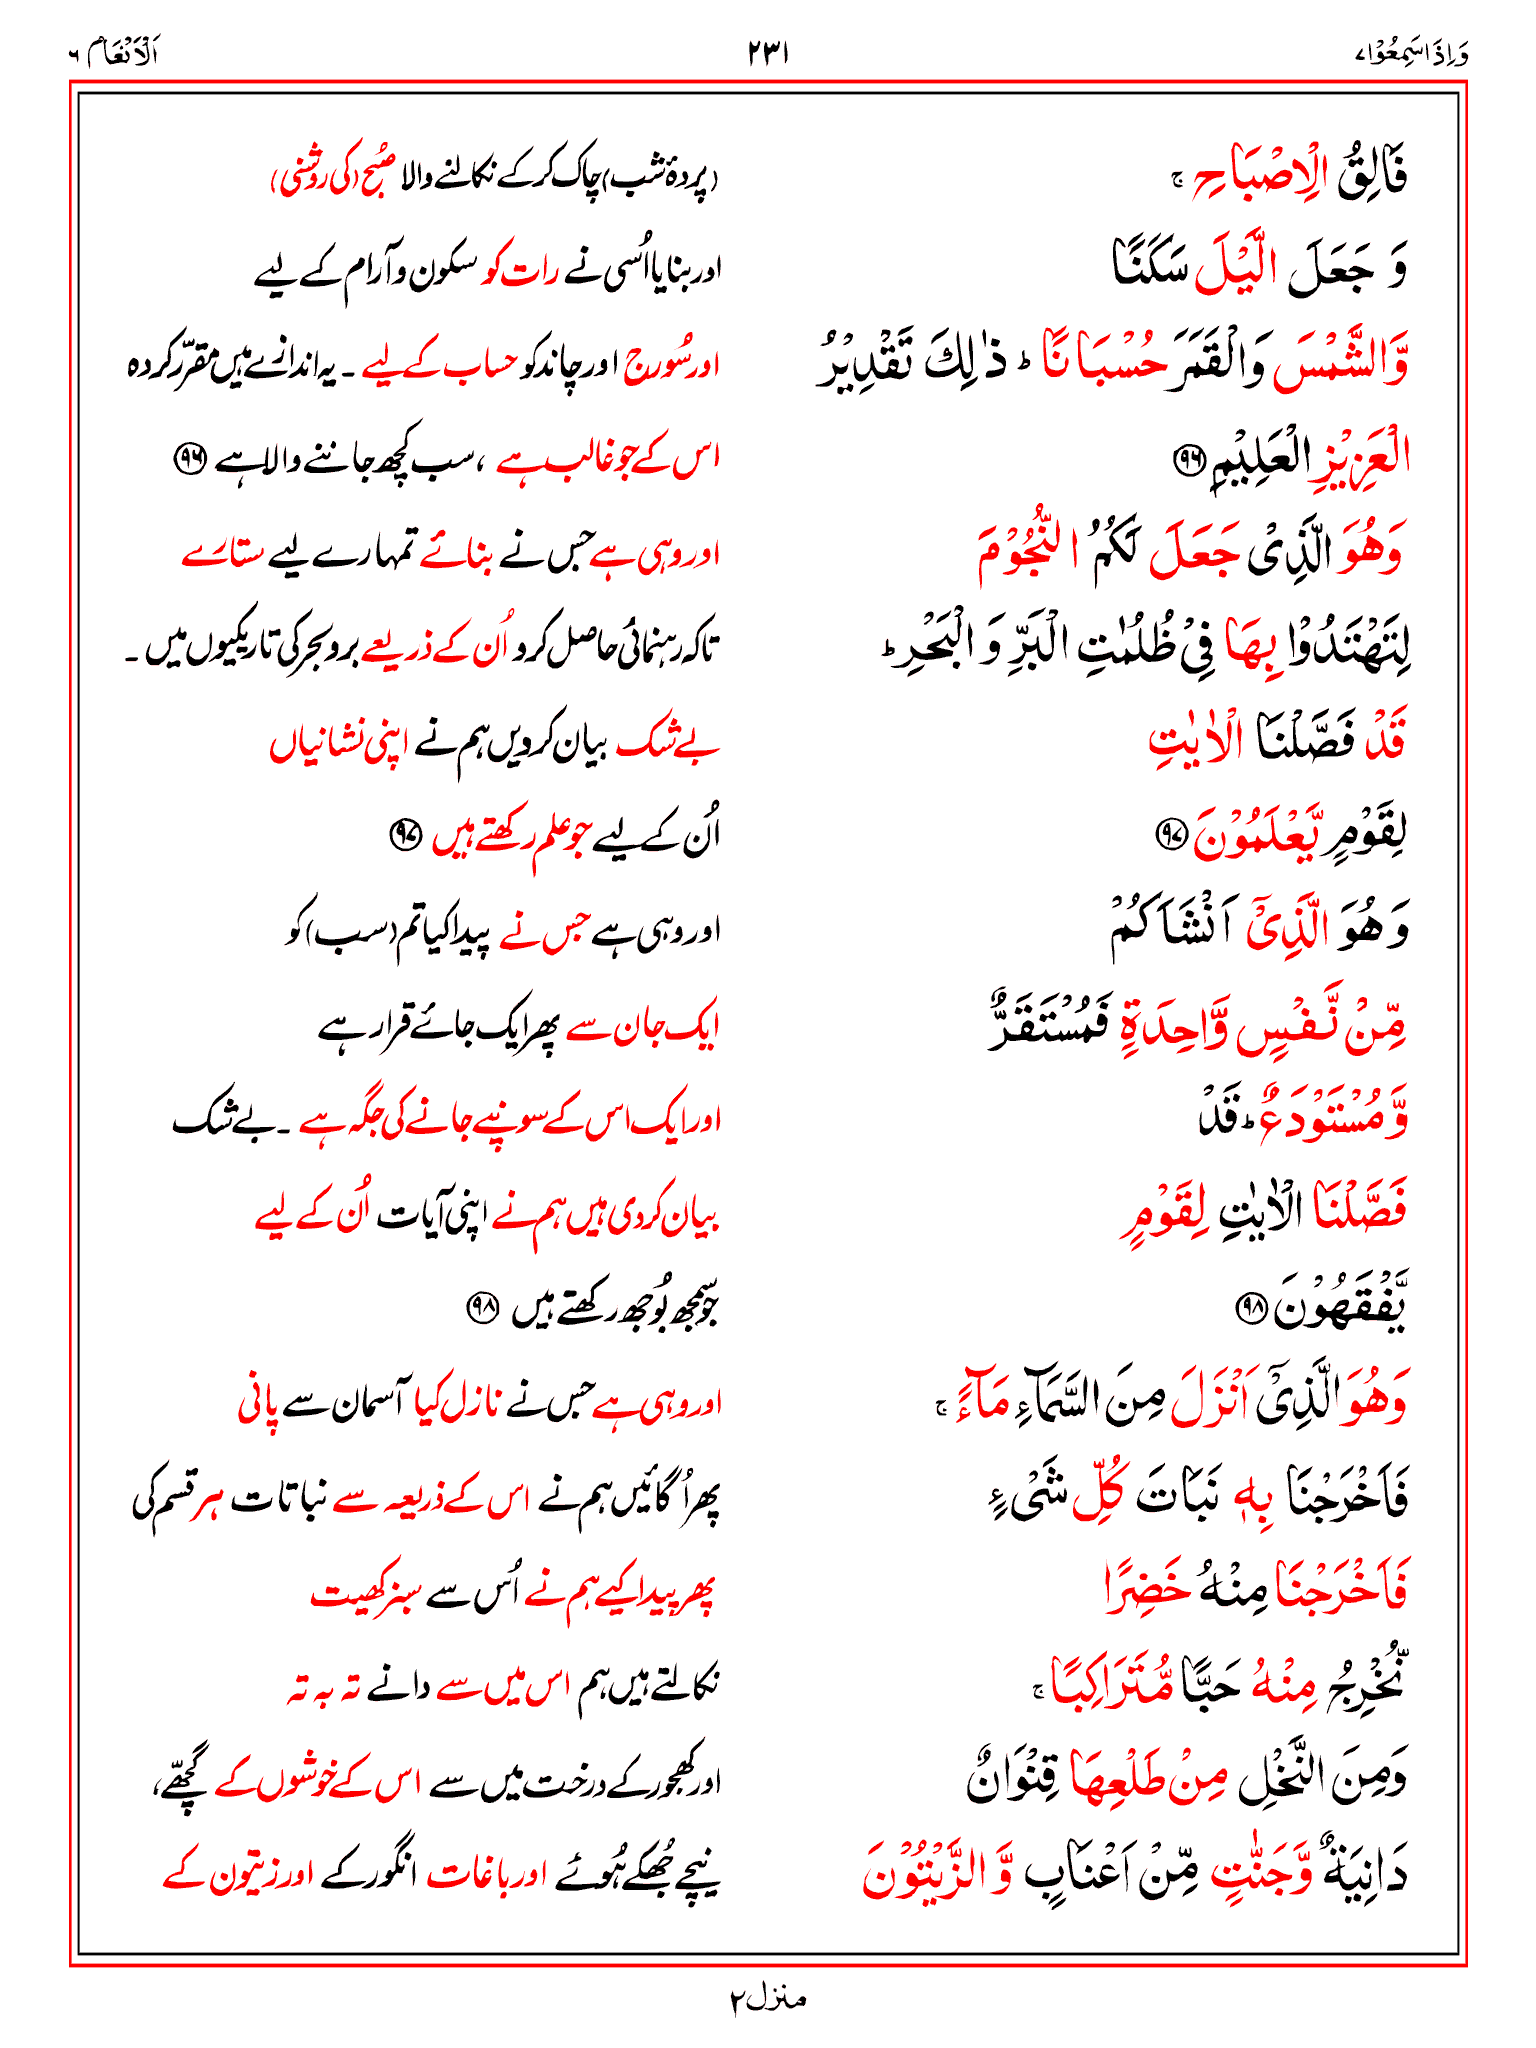 وَاِذَا سَمِعُوْا ۷ ۲۳۱ اَلْاَنْعَام ۶
فَالِقُ الْاِصْبَاحِ ۚ (پردۂ شب) چاک کرکے نکالنے والا صُبح (کی روشنی)
وَ جَعَلَ الَّيْلَ سَكَنًا اور بنایا اُسی نے رات کو سکون و آرام کے لیے
وَّالشَّمْسَ وَالْقَمَرَ حُسْبَانًا ؕ ذٰلِكَ تَقْدِيْرُ اور سُورج اور چاند کو حساب کے لیے ۔ یہ اندازے ہیں مقرّر کردہ
الْعَزِيْزِ الْعَلِيْمِ ۹۶ اس کے جو غالب ہے ، سب کچھ جاننے والا ہے ۹۶
وَهُوَ الَّذِىْ جَعَلَ لَكُمُ النُّجُوْمَ اور وہی ہے جس نے بنائے تمہارے لیے ستارے
لِتَهْتَدُوْا بِهَا فِىْ ظُلُمٰتِ الْبَرِّ وَ الْبَحْرِ ؕ تاکہ رہنمائی حاصل کرو اُن کے ذریعے بر و بحر کی تاریکیوں میں ۔
قَدْ فَصَّلْنَا الْاٰيٰتِ بے شک بیان کردیں ہم نے اپنی نشانیاں
لِقَوْمٍ يَّعْلَمُوْنَ ۹۷ اُن کے لیے جو علم رکھتے ہیں ۹۷
وَ هُوَ الَّذِىْٓ اَنْشَاَكُمْ اور وہی ہے جس نے پیدا کیا تم (سب) کو
مِّنْ نَّفْسٍ وَّاحِدَةٍ فَمُسْتَقَرٌّ ایک جان سے پھر ایک جائے قرار ہے
وَّ مُسْتَوْدَعٌ ؕ قَدْ اور ایک اس کے سونپے جانے کی جگہ ہے ۔ بے شک
فَصَّلْنَا الْاٰيٰتِ لِقَوْمٍ بیان کردی ہیں ہم نے اپنی آیات اُن کے لیے
يَّفْقَهُوْنَ ۹۸ جو سمجھ بُوجھ رکھتے ہیں ۹۸
وَهُوَ الَّذِىْٓ اَنْزَلَ مِنَ السَّمَآءِ مَآءً ۚ اور وہی ہے جس نے نازل کیا آسمان سے پانی
فَاَخْرَجْنَا بِهٖ نَبَاتَ كُلِّ شَىْءٍ پھر اُگائیں ہم نے اس کے ذریعہ سے نباتات ہر قسم کی
فَاَخْرَجْنَا مِنْهُ خَضِرًا پھر پیدا کیے ہم نے اُس سے سبز کھیت
نُّخْرِجُ مِنْهُ حَبًّا مُّتَرَاكِبًا ۚ نکالتے ہیں ہم اس میں سے دانے تہ بہ تہ
وَمِنَ النَّخْلِ مِنْ طَلْعِهَا قِنْوَانٌ اور کھجور کے درخت میں سے اس کے خوشوں کے گچھّے،
دَانِيَةٌ وَّجَنّٰتٍ مِّنْ اَعْنَابٍ وَّ الزَّيْتُوْنَ نیچے جُھکے ہُوئے اور باغات انگور کے اور زیتون کے
منزل ۲